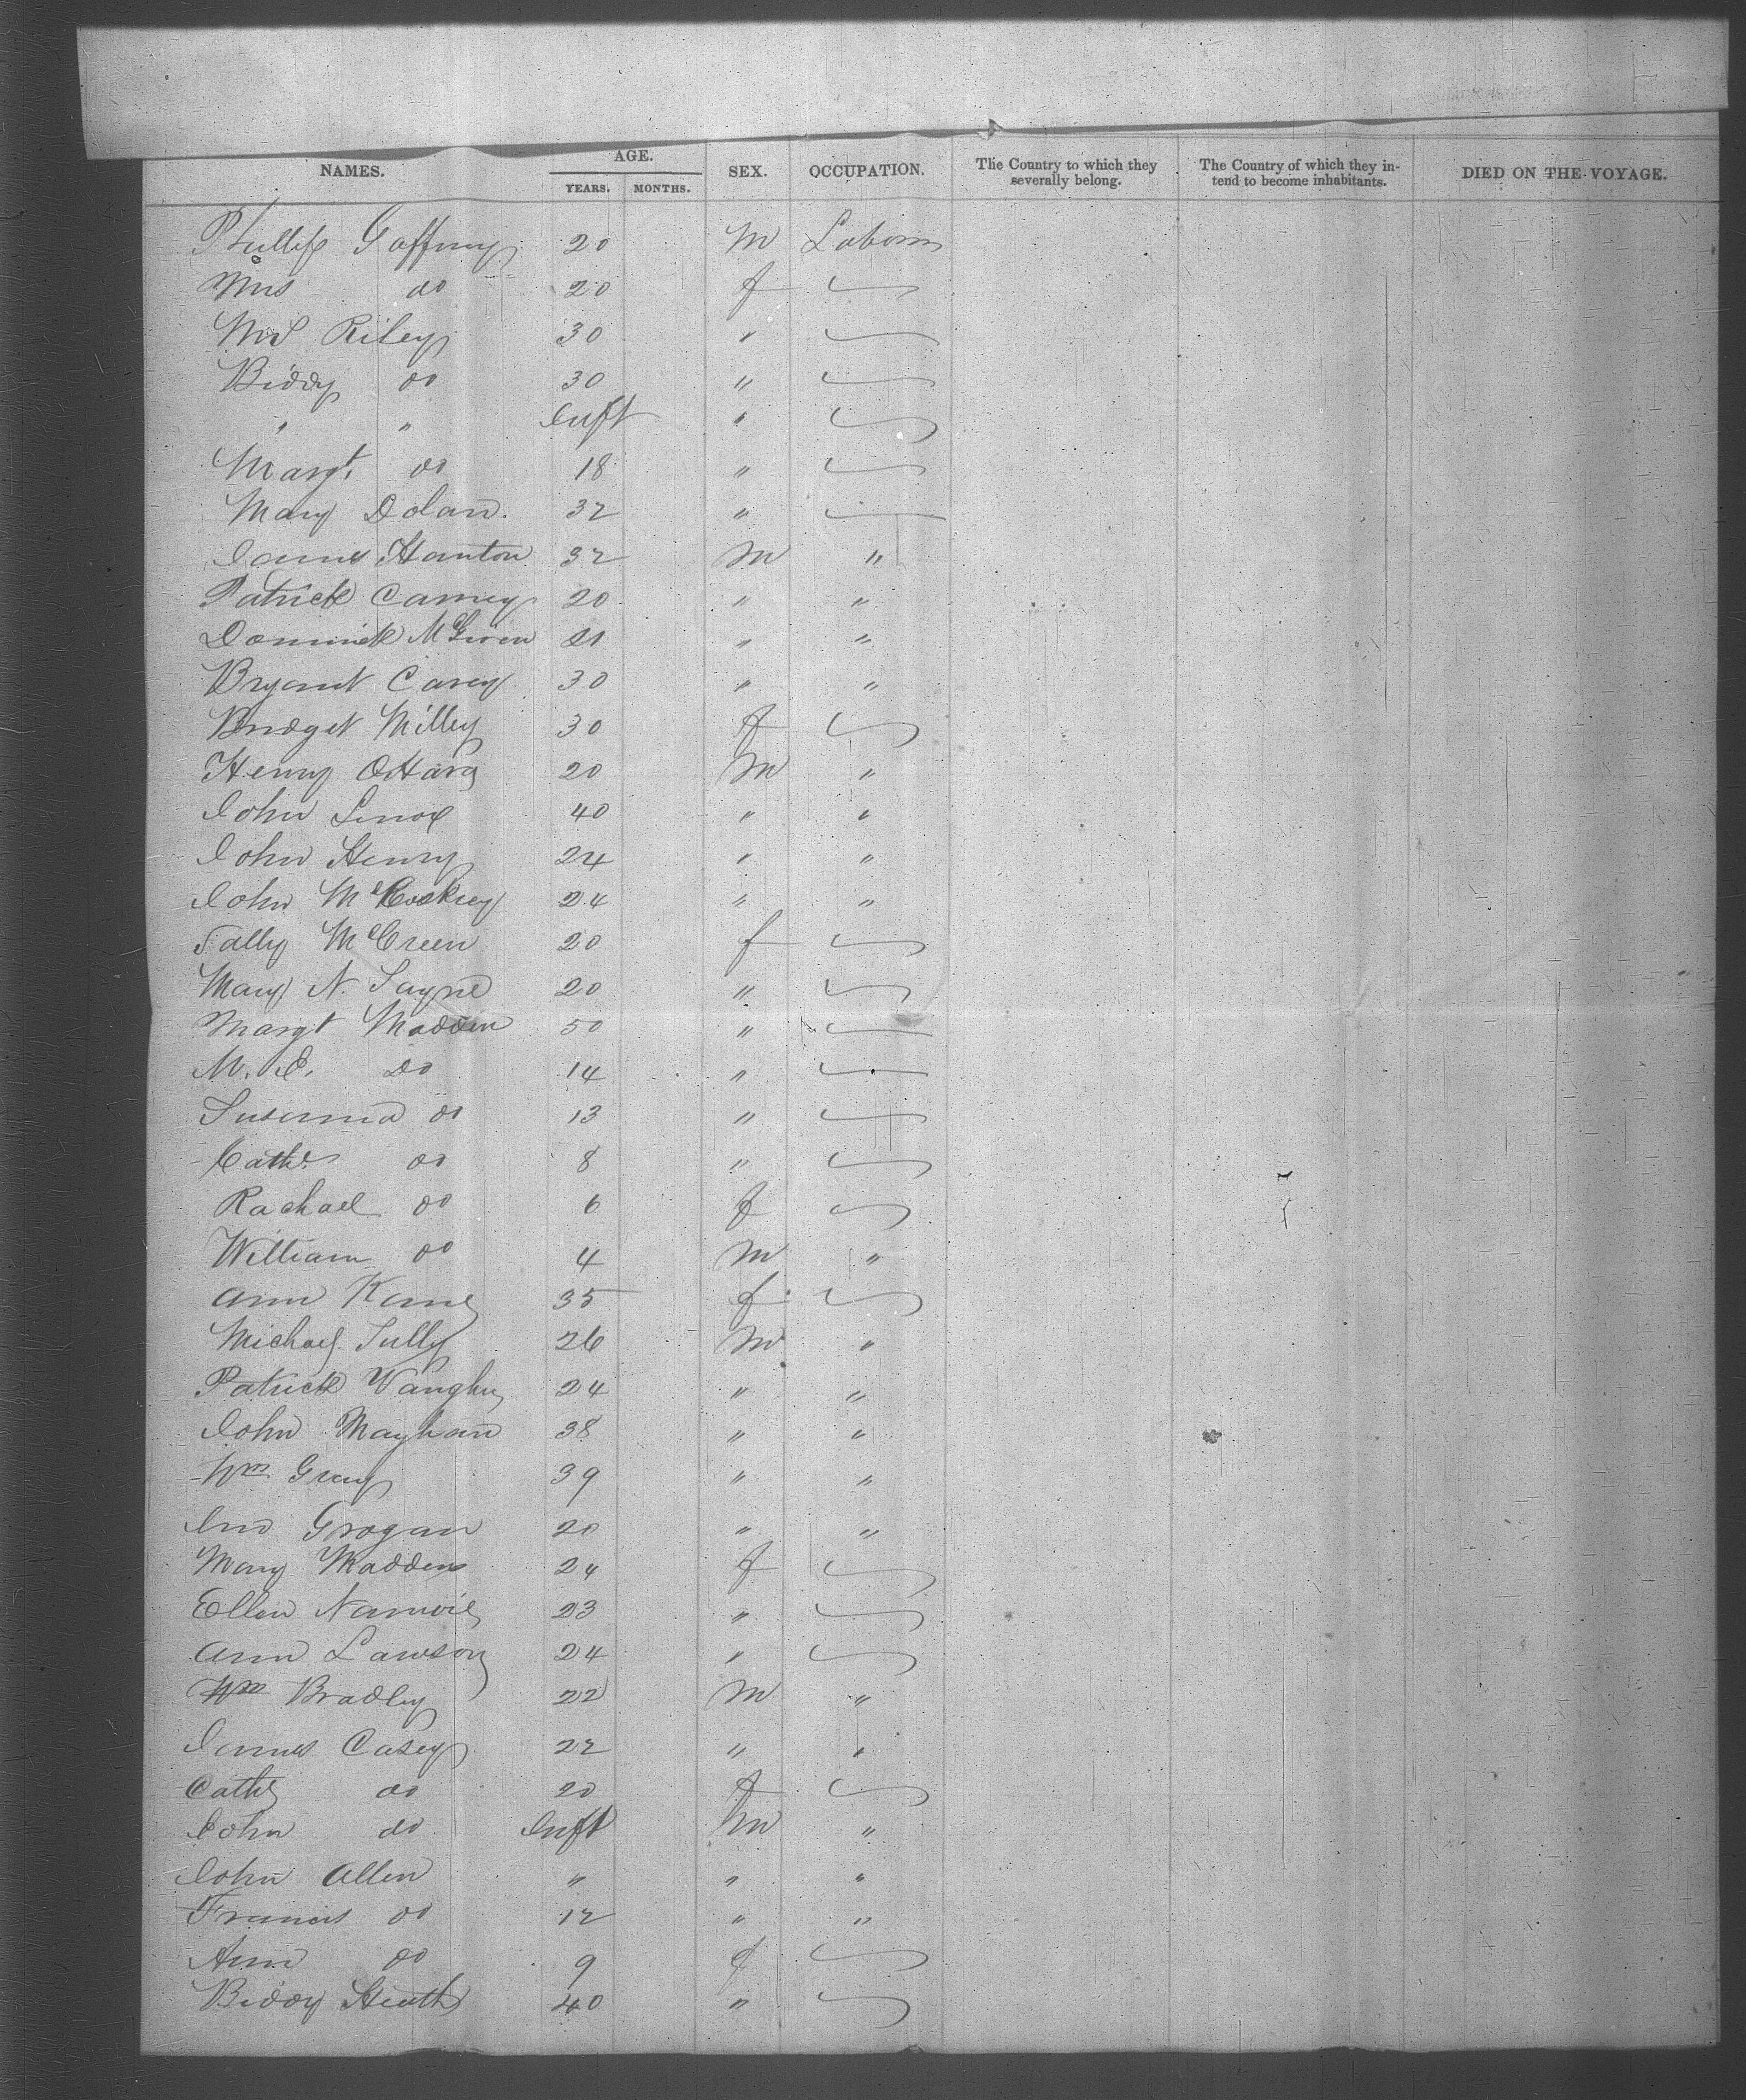 NAMES. AGE. YEARS. MONTHS. SEX. OCCUPATION. The Country to which they severally belong. The Country of which they intend to become inhabitants. DIED ON THE VOYAGE.
Phillip Gaffney 20 M Laborer
Mrs do 20 f
Mrs Riley 30 "
Biddy do 30 "
" " Inft "
Margt. do 18 "
Mary Dolan. 32 "
James Hanton 32 M "
Patrick Carney 20 " "
Dominick 21 " "
Bryant Carey 30 " "
Bridget Milley 30 f
Henry OHara 20 M "
John Lenox 40 " "
John Henry 24 " "
John 24 " "
Sally McCreen 20 f
Mary N. 20 "
Margt Madden 50 "
M. do 14 "
Susanna do 13 "
Cathe do 8 "
Rachael do 6 f
William do 4 M "
Ann Kane 35 f
Michael Tully 26 M "
Patrick Vaughn 24 " "
John Mayhan 38 " "
Wm Gray 39 " "
Jno Grogan 20 " "
Mary Madden 24 f
Ellen 23 "
Ann Lawson 24 "
Wm Bradley 22 M "
James Casey 22 " "
Cathe do 20 f
John do Inft M "
John Allen " " "
Francis do 12 " "
Ann do 9 f
Biddy Heath 40 "